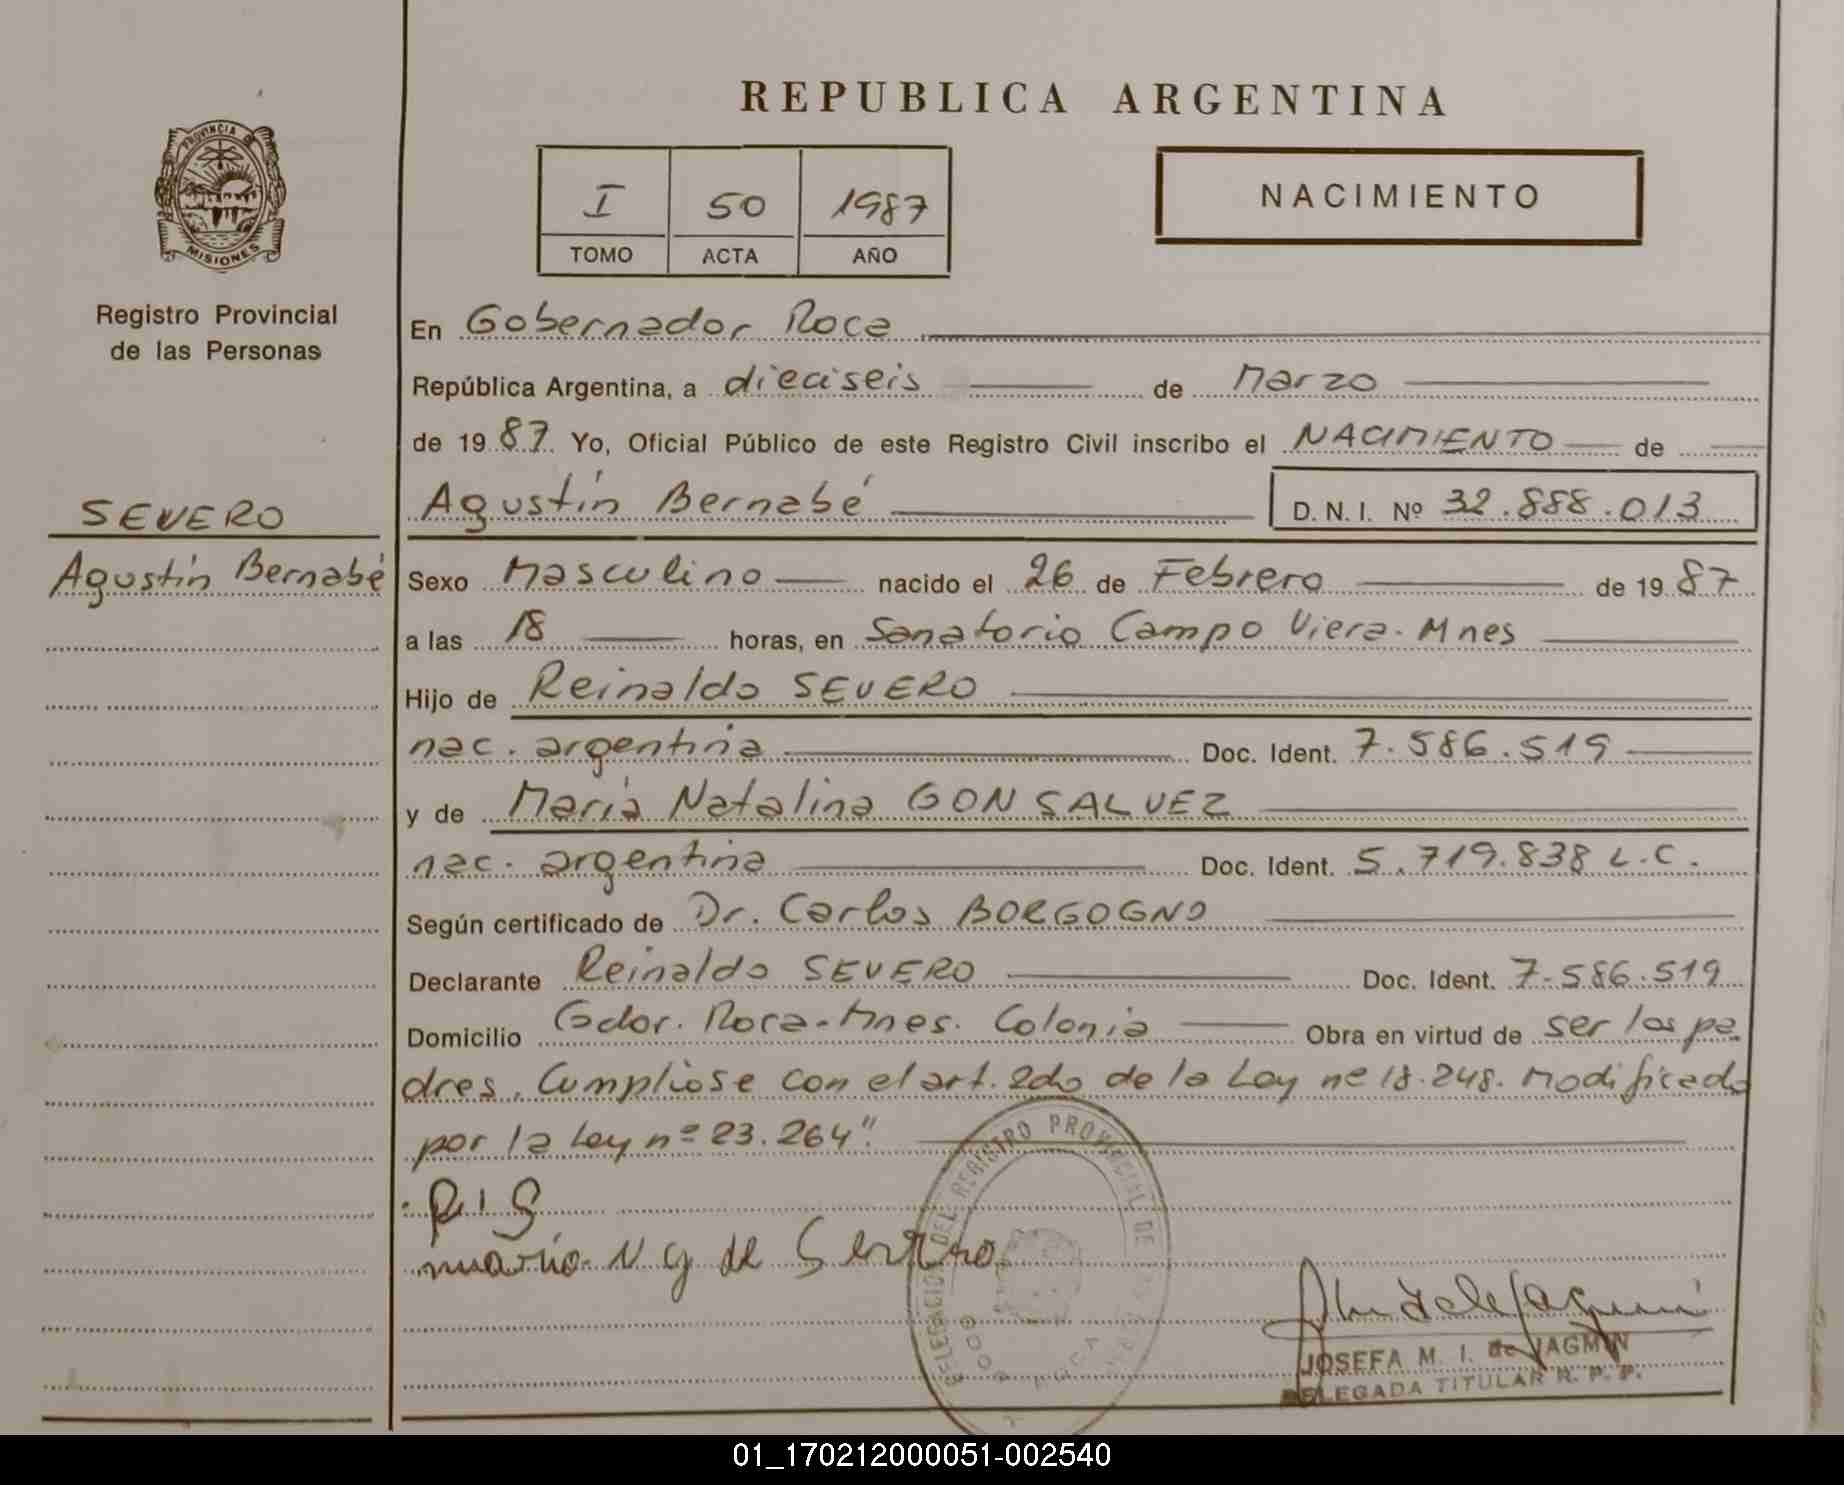 REPUBLICA ARGENTINA
PROVINCIA DE
MISIONES
Registro Provincial
de las Personas
I 50 1987
TOMO ACTA AÑO
NACIMIENTO
En Gobernador Roca
República Argentina, a dieciseis de Marzo
de 1987. Yo, Oficial Público de este Registro Civil inscribo el NACIMIENTO de
SEVERO
Agustín Bernabé
Agustín Bernabé D. N. I. Nº 32.888.013
Sexo Masculino nacido el 26 de Febrero de 1987
a las 18 horas, en Sanatorio Campo Viera. Mnes
Hijo de Reinaldo SEVERO
nac. argentina Doc. Ident. 7.586.519
y de María Natalina GONSALVEZ
nac. argentina Doc. Ident. 5.719.838 L.C.
Según certificado de Dr. Carlos BORGOGNO
Declarante Reinaldo SEVERO Doc. Ident. 7.586.519
Domicilio Gdor. Roca-Mnes. Colonia Obra en virtud de ser los pa
dres. Cumpliose con el art. 2do de la Ley nº 18.248. Modificado
por la Ley nº 23.264".
R I S
maria N G de Severo
DELEGACION DEL REGISTRO PROVINCIAL DE
GDOR ROCA
JOSEFA M. I. de JAGMIN
DELEGADA TITULAR R. P. P.
01_170212000051-002540